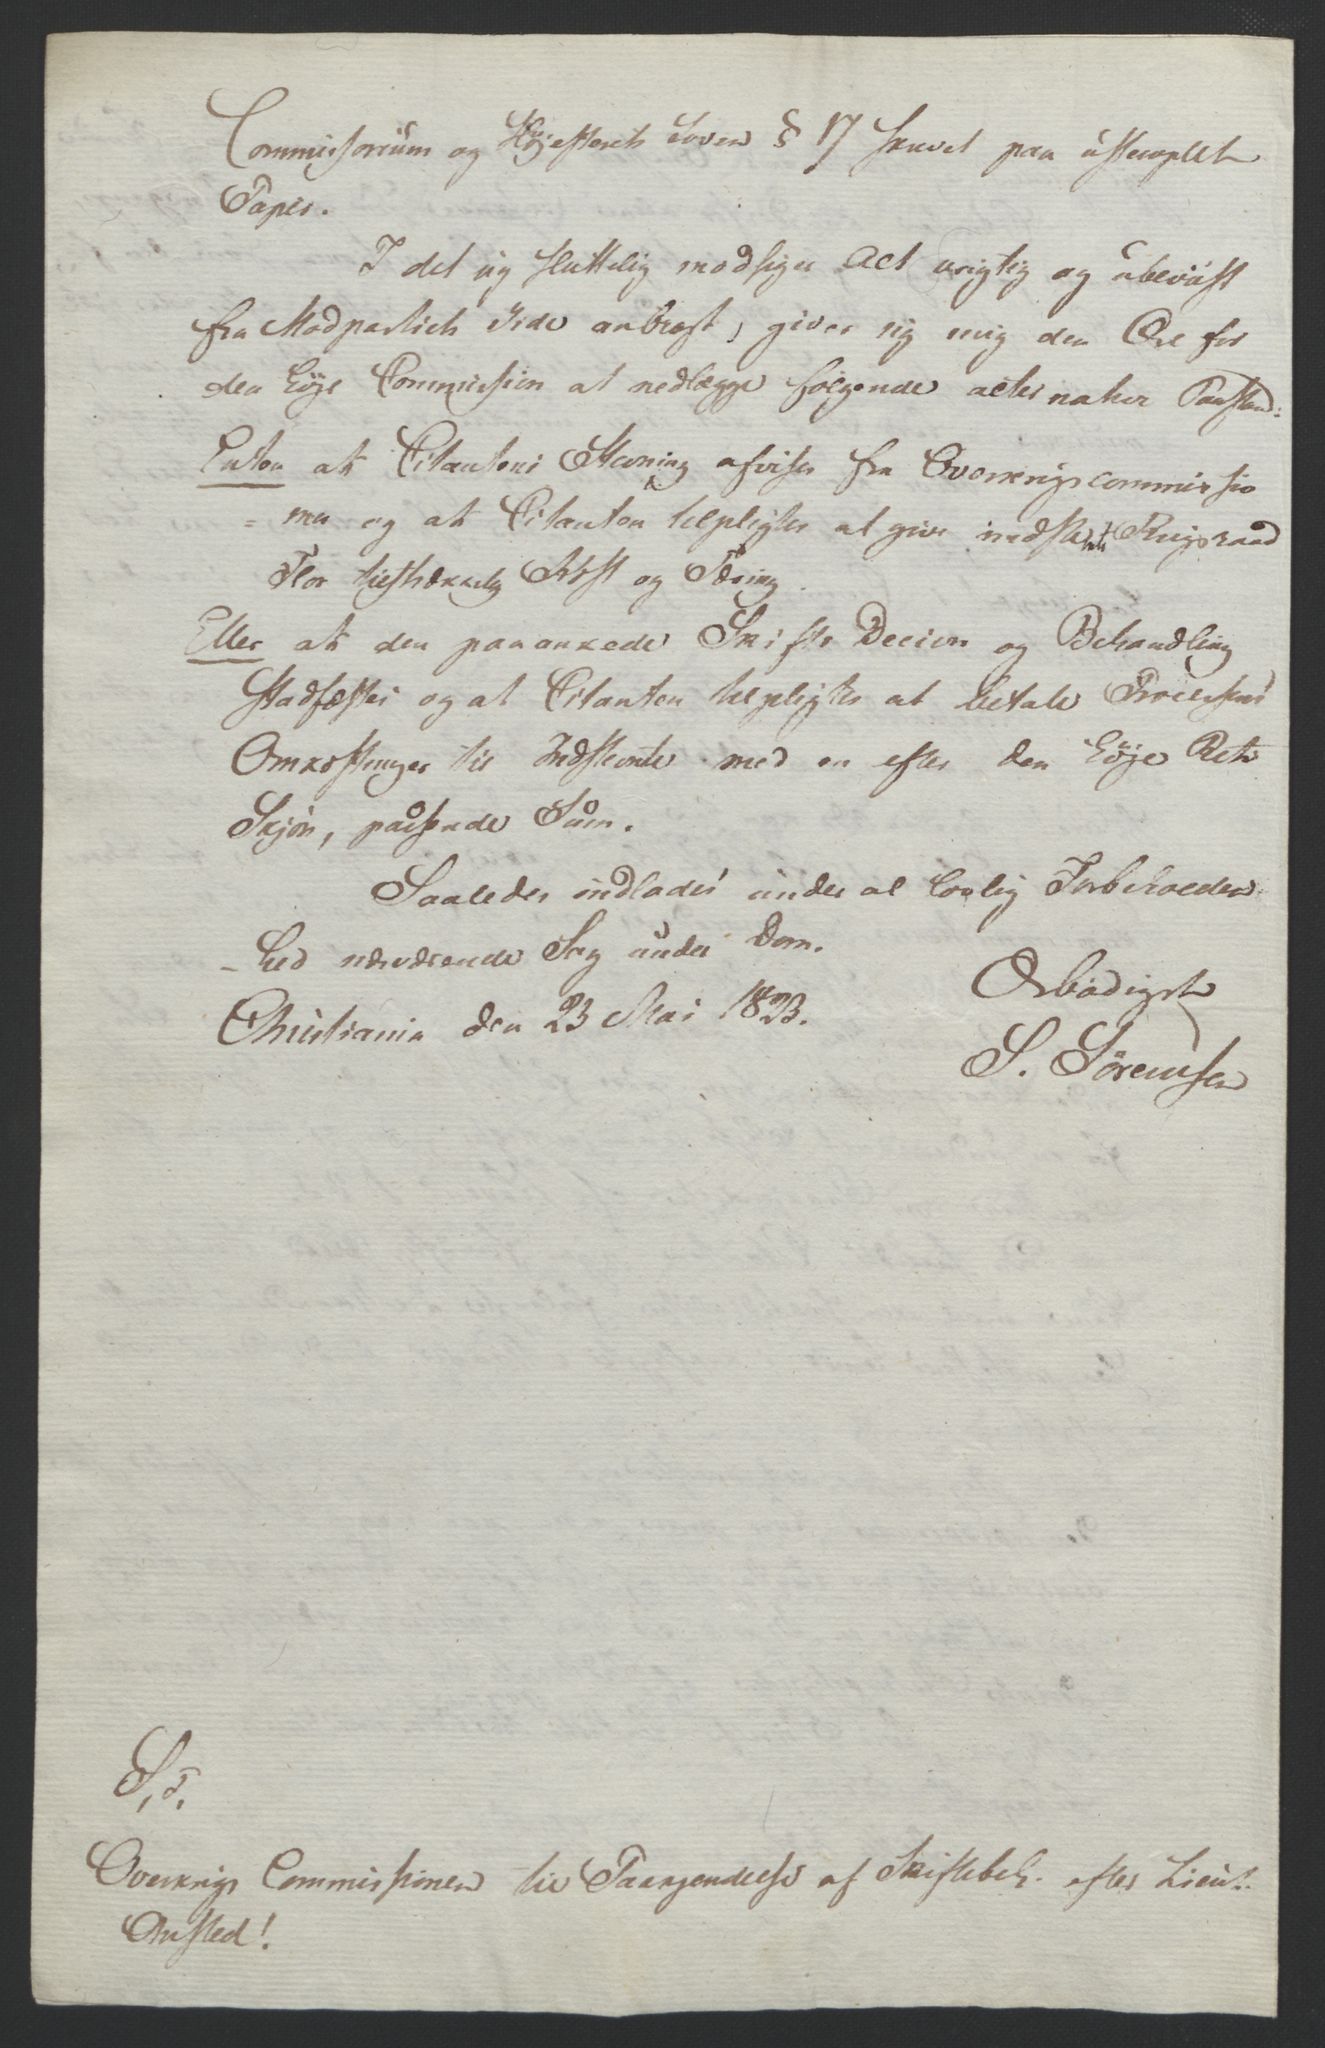 Commissorium og Høiesterets Loven § 17 skrevet paa ustemplet
Papir.
I det jeg sluttelig modsiger Alt urigtig og ubeviist
fra Modpartiets Side anbragt, giver jeg mig den Ære for
den höje Commission at nedlægge følgende alternative Paastand:
Enten at Citantens Stevning afvises fra Overkrigscommissio
= nen og at Citanten tilpligtes at give indstevnte Krigsraad
Flor tilstrækkelig Kost og Tæring.
Eller at den paaankede Skifte Decision og Behandling
stadfæstes og at Citanten tilpligtes at betale Processens
Omkostninger til Indstevnte med en efter den höje Rets
Skjön, passende Sum.
Saaledes indlades under al lovlig Forbeholden-
- hed nærværende Sag under Dom.
Christiania den 23 Mai 1823.
Ærbödigst
S. Sörenssen
S. T.
Overkrigs Commissionen til Paakjendelse af Skiftebeh. efter Lieut.
Ansted!